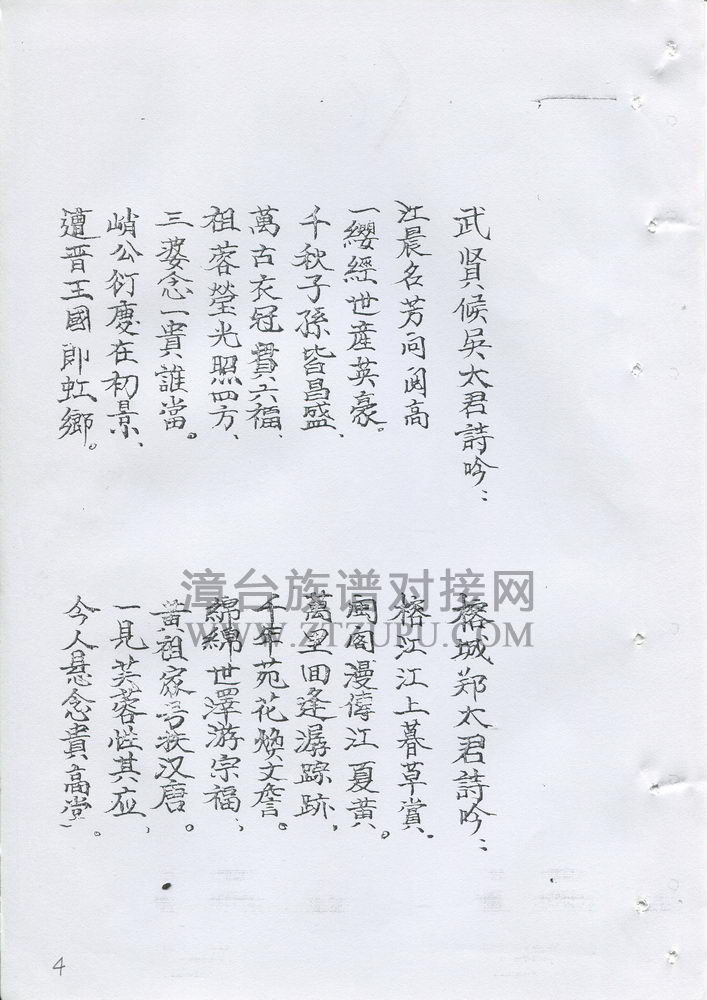 武賢候吳太君詩吟：
江晨名芳向閩高
一纓經世產英豪。
千秋子孫皆昌盛、
萬古衣冠費六福、
祖蓉瑩光照四方、
三婆念一貴誰當。
峭公衍慶在初景、
遭晋王國即虹鄉。
榕城郑太君詩吟：
榕江江上暮草賞.
闽阁漫傳江夏黄。
萬里回逢潺踪跡，
千年苑花焕文詹。
綿綿世澤游宗福、
黄祖家号扶汉唐。
一見芙蓉性其应、
今人悬念貴高堂。
漳台族谱对接网
WWW.ZTZUPU.COM
4